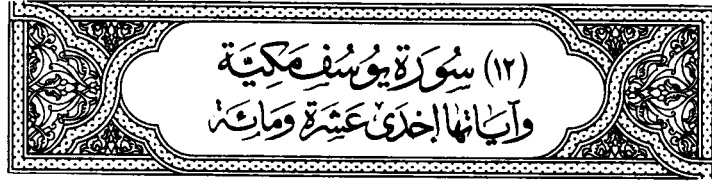 (١٢) سُورَة يُوسُف مَكِيَّة
وَآيَاتهَا إِحْدَىٰ عَشْرَة وَمَائَة